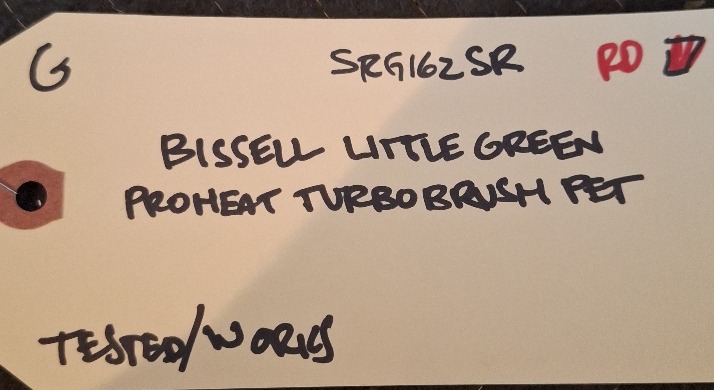 G SRG162SR RD
BISSELL LITTLE GREEN
PROHEAT TURBOBRUSH PET
TESTED/WORKS